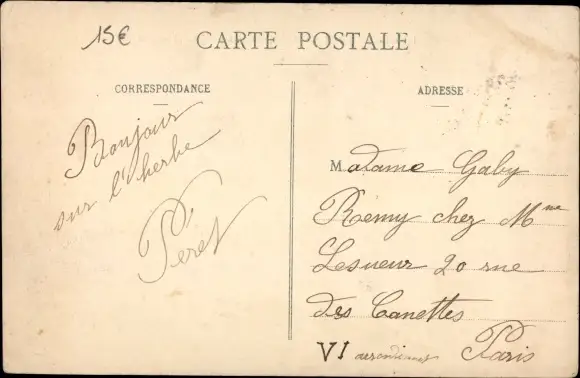 15€
CARTE POSTALE
CORRESPONDANCE
Bonjour
sur l'herbe
Péret
ADRESSE
Madame Gaby
Remy chez Mme
Lesueur 20 rue
des Canettes
VI Paris